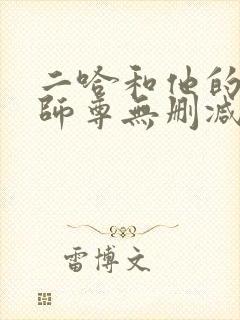 二哈和他的
師尊無刪減
雷博文